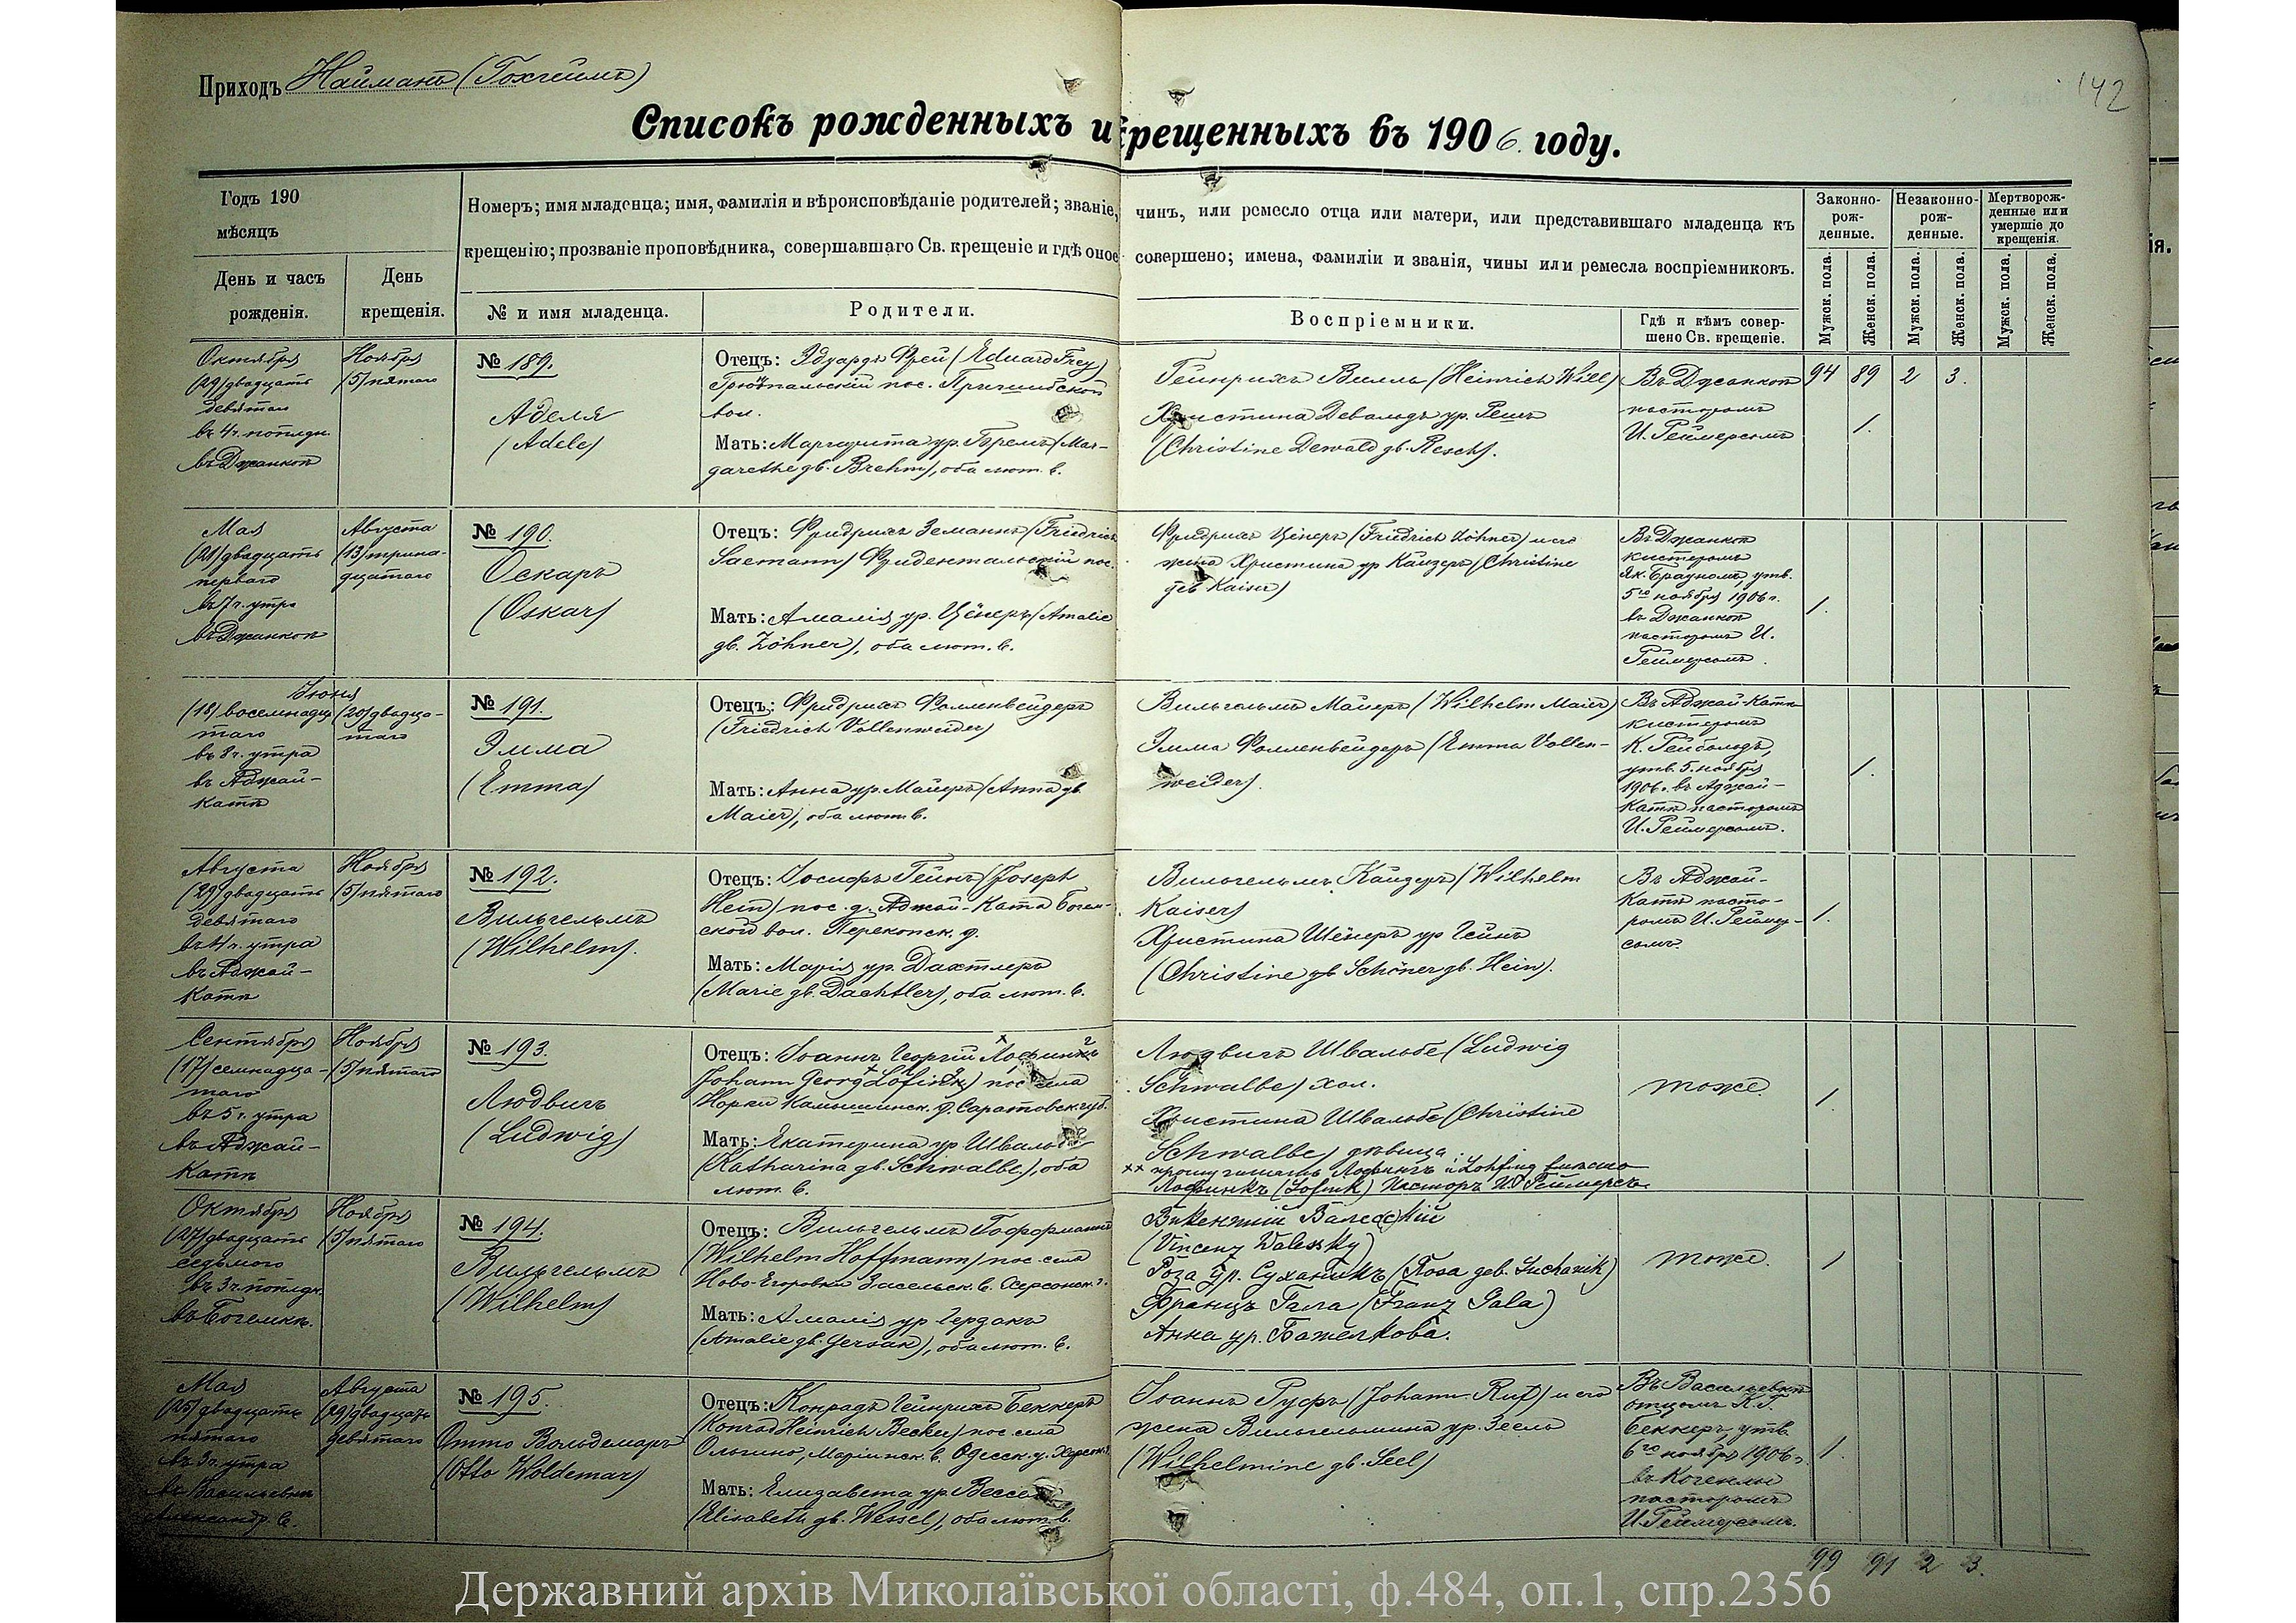 Приходъ Найманъ (Гохгеймъ)
142
Списокъ рожденныхъ и крещенныхъ въ 1906 году.
Годъ 190
мѣсяцъ
День и часъ рожденія.
День крещенія.
Номеръ; имя младенца; имя, фамилія и вѣроисповѣданіе родителей; званіе, чинъ, или ремесло отца или матери, или представившаго младенца къ
крещенію; прозваніе проповѣдника, совершавшаго Св. крещеніе и гдѣ оное совершено; имена, фамиліи и званія, чины или ремесла воспріемниковъ.
№ и имя младенца.
Родители.
Воспріемники.
Гдѣ и кѣмъ совер-
шено Св. крещеніе.
Законно-
рож-
денные.
Незаконно-
рож-
денные.
Мертворож-
денные или
умершіе до
крещенія.
Мужск. пола.
Женск. пола.
Мужск. пола.
Женск. пола.
Мужск. пола.
Женск. пола.
Октября
(29) двадцать
девятаго
въ 4 ч. пополдн.
въ Джанкоѣ
Ноября
(5) пятаго
№ 189.
Аделя
(Adele)
Отецъ: Эдуардъ Фрей (Eduard Frey)
Грюнтальскій пос. Пришибской
вол.
Мать: Маргарита ур. Бремъ (Mar-
garethe gb. Brehm), оба лют. в.
Гейнрихъ Вилль (Heinrich Will)
Христина Девальдъ ур. Решъ
(Christine Dewald gb. Resch).
Въ Джанкоѣ
пасторомъ
И. Реймерсомъ
94 89 2 3.
1.
Мая
(21) двадцать
перваго
въ 7 ч. утра
въ Джанкоѣ
Августа
(13) трина-
дцатаго
№ 190.
Оскаръ
(Oskar)
Отецъ: Фридрихъ Земанъ (Friedrich
Saemann) Фридентальскій пос.
Мать: Амалія ур. Цёнеръ (Amalie
gb. Zöhner), оба лют. в.
Фридрихъ Цёнеръ (Friedrich Zöhner) и его
жена Христина ур Кайзеръ (Christine
geb Kaiser)
Въ Джанкоѣ
кистеромъ
Як. Брауномъ, утв.
5го ноября 1906 г.
въ Джанкоѣ
пасторомъ И.
Реймерсомъ.
1.
Іюня
(18) восемнадца
таго
въ 8 ч. утра
въ Аджай-
Катѣ
(20) двадца-
таго
№ 191.
Эмма
(Emma)
Отецъ: Фридрихъ Фолленвейдеръ
(Friedrich Vollenweider)
Мать: Анна ур. Майеръ (Anna gb.
Maier), оба лют. в.
Вильгельмъ Майеръ (Wilhelm Maier)
Эмма Фолленвейдеръ (Emma Vollen-
weider).
Въ Аджай-Катѣ
кистеромъ
К. Рейбольдъ,
утв. 5. ноября
1906 г. въ Аджай-
Катѣ пасторомъ
И. Реймерсомъ.
1.
Августа
(29) двадцать
девятаго
въ 4 ч. утра
въ Аджай-
Катѣ
Ноября
(5) пятаго
№ 192.
Вильгельмъ
(Wilhelm).
Отецъ: Іосифъ Гейнъ (Joseph
Hein) пос. д. Аджай-Ката Богем-
ской вол. Перекопск. у.
Мать: Марія ур. Дахтлеръ
(Marie gb. Dachtler), оба лют. в.
Вильгельмъ Кайзеръ (Wilhelm
Kaiser)
Христина Шёнеръ ур Гейнъ
(Christine gb Schöner gb. Hein).
Въ Аджай-
Катѣ пасто-
ромъ И. Реймер-
сомъ.
1.
Сентября
(17) семнадца-
таго
въ 5 ч. утра
въ Аджай-
Катѣ
Ноября
(5) пятаго
№ 193.
Людвигъ
(Ludwig)
Отецъ: Іоаннъ Георгій Лофинкъ
Johann Georg Lofink) пос. села
Норки Камышинск. у. Саратовск. губ.
Мать: Екатерина ур Швальбе
(Katharina gb. Schwalbe), оба
лют. в.
Людвигъ Швальбе (Ludwig
Schwalbe) хол.
Христина Швальбе (Christine
Schwalbe) дѣвица.
Лофинкъ (Lofink) Пасторъ И. Реймерсъ.
тоже.
1.
Октября
(27) двадцать
седьмого
въ 3 ч. пополдн.
въ Богемкѣ.
Ноября
(5) пятаго
№ 194.
Вильгельмъ
(Wilhelm)
Отецъ: Вильгельмъ Гоффманнъ
(Wilhelm Hoffmann) пос. села
Ново-Егоровки Засельск. в. Херсонск. г.
Мать: Амалія ур Герзакъ
(Amalie gb. Gersak), оба лют. в.
Викентій Валесскій
(Vincenz Walessky)
Роза ур. Суханикъ (Rosa geb. Suchanik)
Францъ Гала (Franz Gala)
Анна ур. Бажелкова.
тоже.
1
Мая
(25) двадцать
пятаго
въ 3 ч. утра
въ Васильевкѣ
Александр. в.
Августа
(29) двадцать
девятаго
№ 195.
Отто Вольдемаръ
(Otto Woldemar)
Отецъ: Конрадъ Гейнрихъ Беккеръ
(Konrad Heinrich Becker) пос. села
Ольгино, Маріинск. в. Одесск. у. Херсон. г.
Мать: Елизавета ур Вессель
(Elisabeth gb. Wessel), оба лют. в.
Іоаннъ Руфъ (Johann Ruf) и его
жена Вильгельмина ур. Зеель
(Wilhelmine gb. Seel)
Въ Васильевкѣ
отцомъ К. Г.
Беккеръ, утв.
6го ноября 1906 г.
въ Когенлы
пасторомъ
И. Реймерсомъ.
1.
99 91 2 3.
Державний архів Миколаївської області, ф.484, оп.1, спр.2356